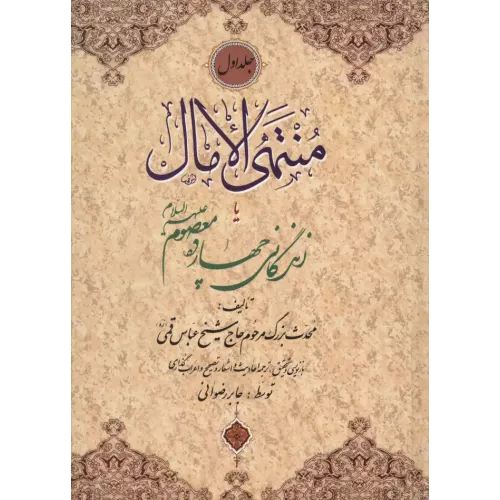 جلد اول
منتهی الآمال
یا
زندگانی چهارده معصوم علیهم السلام
تألیف:
محدث بزرگ مرحوم حاج شیخ عباس قمی (ره)
بازنویسی و تحقیق، ترجمه احادیث و اشعار و تصحیح و اعراب گذاری
توسط: جابر رضوانی